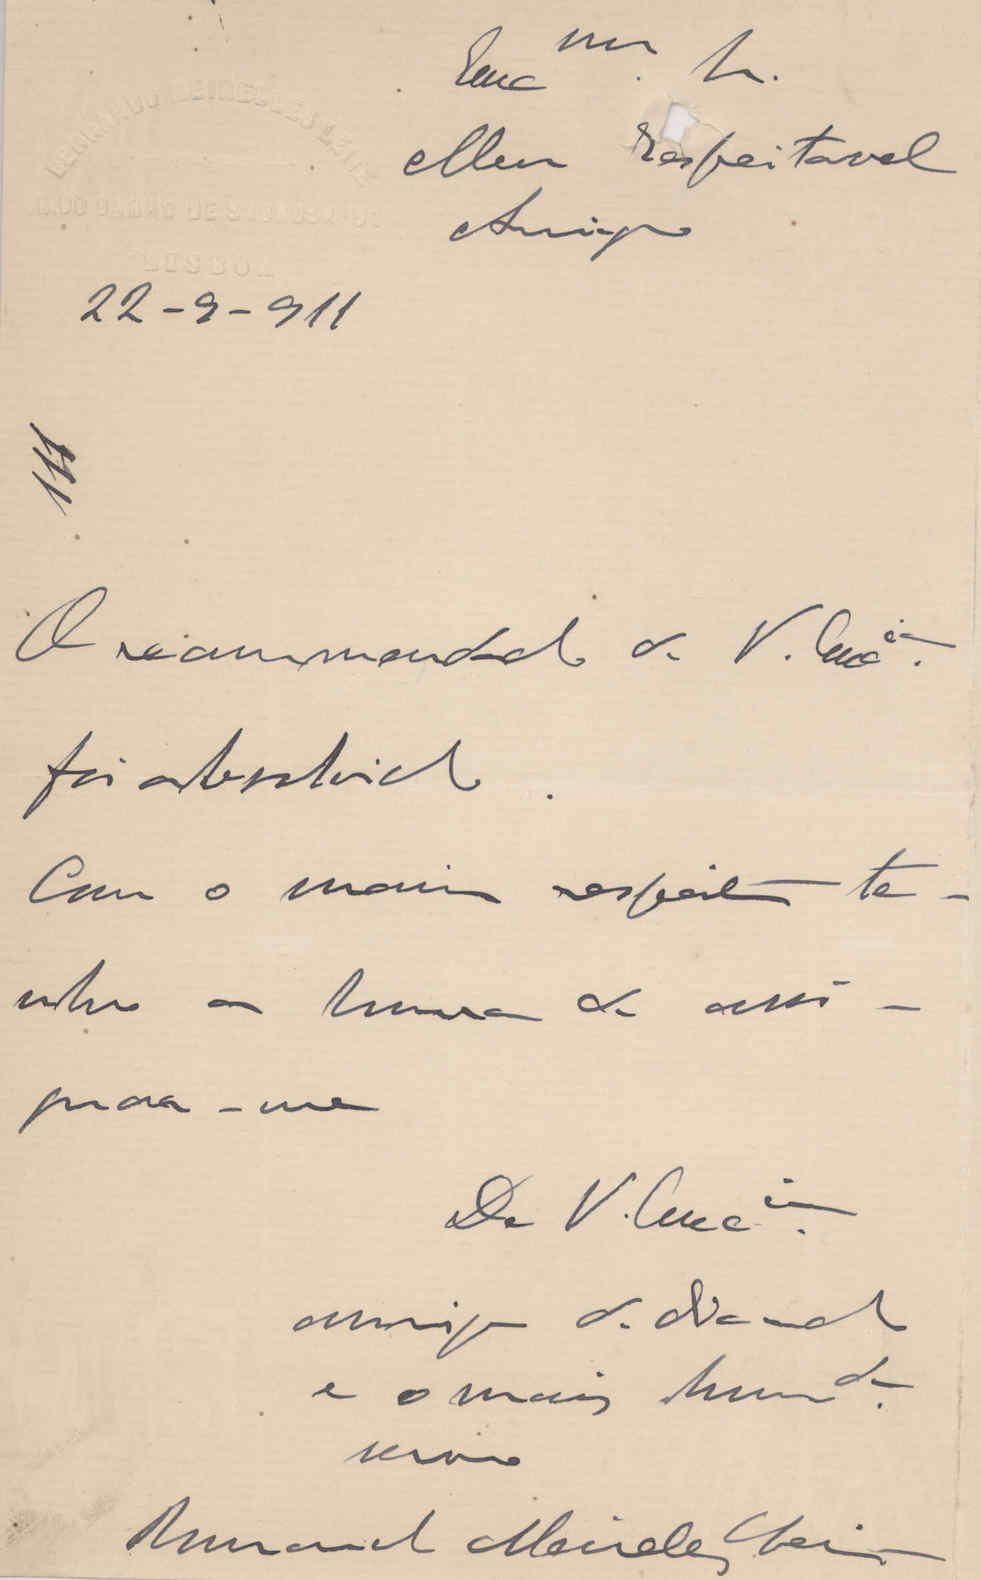 BERNARDO MEIRELLES LEITE
LISBOA
Exc.mo Sr.
Meu Respeitavel
Amigo
22-9-911
O recommendado de V. Exc.ia
foi absolvido.
Com o maior respeito te-
nho a honra de assi-
gnar-me
De V. Exc.ia
amigo dedicado
e o mais hum.de
servo
Bernardo Meirelles Leite